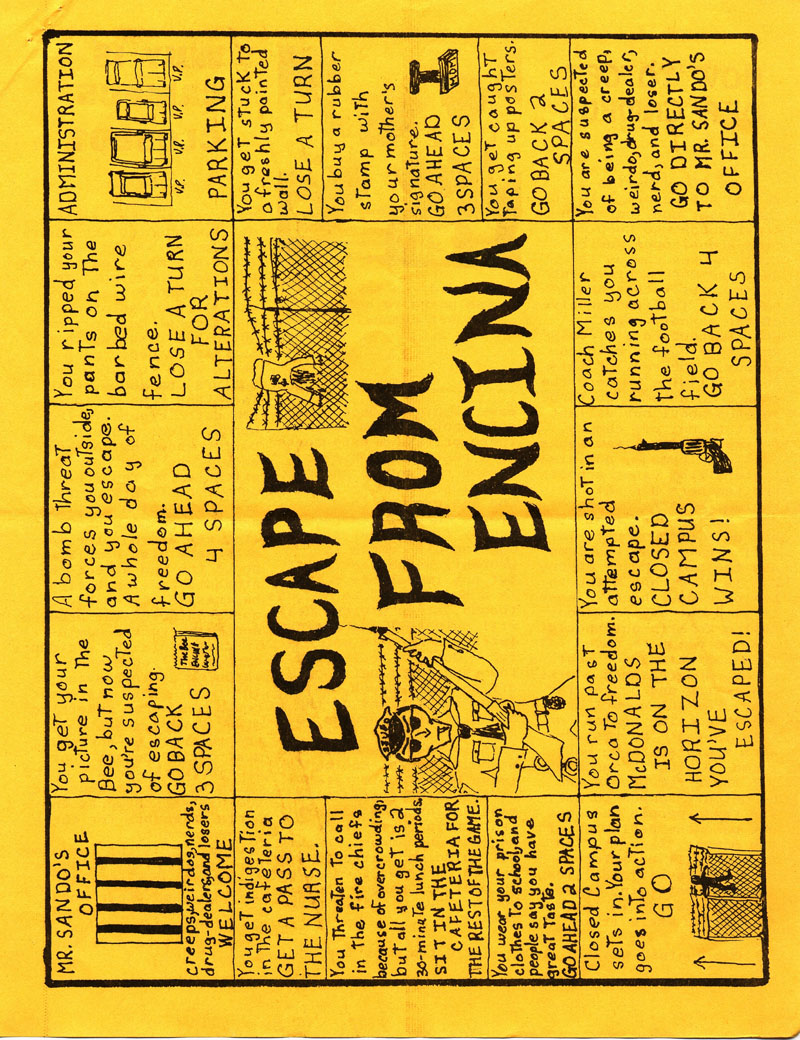 MR. SANDO'S
OFFICE
creeps, weirdos, nerds,
drug-dealers, and losers
WELCOME
You get your
picture in the
Bee, but now
you're suspected
of escaping.
GO BACK
3 SPACES
THE BEE
A bomb threat
forces you outside,
and you escape.
A whole day of
freedom.
GO AHEAD
4 SPACES
You ripped your
pants on the
barbed wire
fence.
LOSE A TURN
FOR
ALTERATIONS
ADMINISTRATION
V.P. V.P. V.P. V.P.
PARKING
You get indigestion
in the cafeteria
GET A PASS TO
THE NURSE.
You threaten to call
in the fire chiefs
because of overcrowding,
but all you get is 2
30-minute lunch periods.
SIT IN THE
CAFETERIA FOR
THE REST OF THE GAME.
You wear your prison
clothes to school, and
people say you have
great taste.
GO AHEAD 2 SPACES
ESCAPE
FROM
ENCINA
You get stuck to
a freshly painted
wall.
LOSE A TURN
You buy a rubber
stamp with
your mother's
signature.
GO AHEAD
3 SPACES
MOM
You get caught
Taping up posters.
GO BACK 2
SPACES
Closed Campus
sets in. Your plan
goes into action.
GO
You run past
Orca To freedom.
McDONALDS
IS ON THE
HORIZON
YOU'VE
ESCAPED!
You are shot in an
attempted
escape.
CLOSED
CAMPUS
WINS!
Coach Miller
catches you
running across
the football
field.
GO BACK 4
SPACES
You are suspected
of being a creep,
weirdo, drug-dealer,
nerd, and loser.
GO DIRECTLY
TO MR. SANDO'S
OFFICE